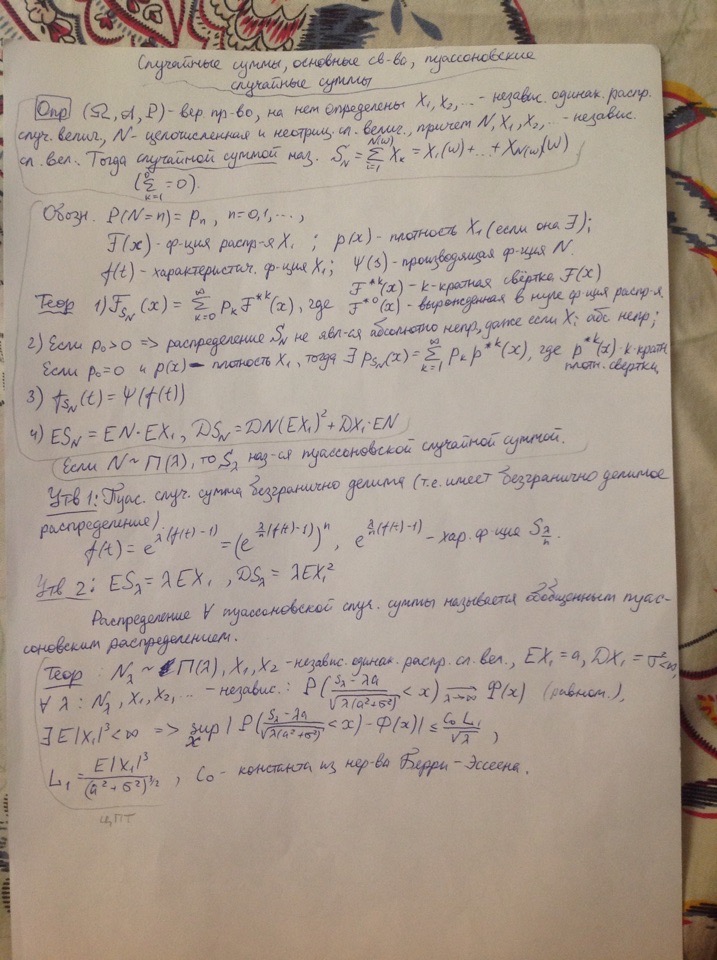 Случайные суммы, основные св-во, пуассоновские
случайные суммы
Опр (Ω, 𝒜, P) - вер. пр-во, на нем определены X₁, X₂, ... - независ. одинак. распр.
случ. велич., N - целочисленная и неотриц. сл. велич., причем N, X₁, X₂, ... - независ.
сл. вел. Тогда случайной суммой наз. S_N = Σ_{i=1}^{N(ω)} X_k = X₁(ω) + ... + X_{N(ω)}(ω)
(Σ_{k=1}^{0} = 0).
Обозн. P(N=n) = p_n, n=0,1,...,
F(x) - ф-ция распр-я X₁ ; p(x) - плотность X₁ (если она ∃);
f(t) - характеристич. ф-ция X₁; Ψ(s) - производящая ф-ция N.
F^{*k}(x) - k-кратная свёртка F(x)
Теор 1) F_{S_N}(x) = Σ_{k=0}^{∞} p_k F^{*k}(x), где F^{*0}(x) - вырожденная в нуле ф-ция распр-я.
2) Если p₀>0 => распределение S_N не явл-ся абсолютно непр, даже если X_i абс непр;
Если p₀=0 и p(x) - плотность X₁, тогда ∃ p_{S_N}(x) = Σ_{k=1}^{∞} p_k p^{*k}(x), где p^{*k}(x) - k-кратн
плотн. свертки
3) f_{S_N}(t) = Ψ(f(t))
4) ES_N = EN·EX₁, DS_N = DN(EX₁)² + DX₁·EN
Если N ~ П(λ), то S_λ наз-ся пуассоновской случайной суммой.
Утв 1: Пуас. случ. сумма безгранично делима (т.е. имеет безгранично делимое
распределение)
f(t) = e^{λ(f(t)-1)} = (e^{λ/n (f(t)-1)})^n, e^{λ/n (f(t)-1)} - хар. ф-ция S_{λ/n}.
Утв 2: ES_λ = λEX₁, DS_λ = λEX₁²
Распределение ∀ пуассоновской случ. суммы называется обобщенным пуас-
соновским распределением.
Теор : N_λ ~ П(λ), X₁, X₂ - независ. одинак. распр. сл. вел., EX₁ = a, DX₁ = σ²<∞,
∀ λ : N_λ, X₁, X₂, ... - независ.: P((S_λ - λa)/√(λ(a²+σ²)) < x) →_{λ→∞} Φ(x) (равном.),
∃ E|X₁|³<∞ => sup_x |P((S_λ - λa)/√(λ(a²+σ²)) < x) - Φ(x)| ≤ C₀L₁/√λ ,
L₁ = E|X₁|³/(a²+σ²)^{3/2} , C₀ - константа из нер-ва Берри-Эссеена.
ЦПТ